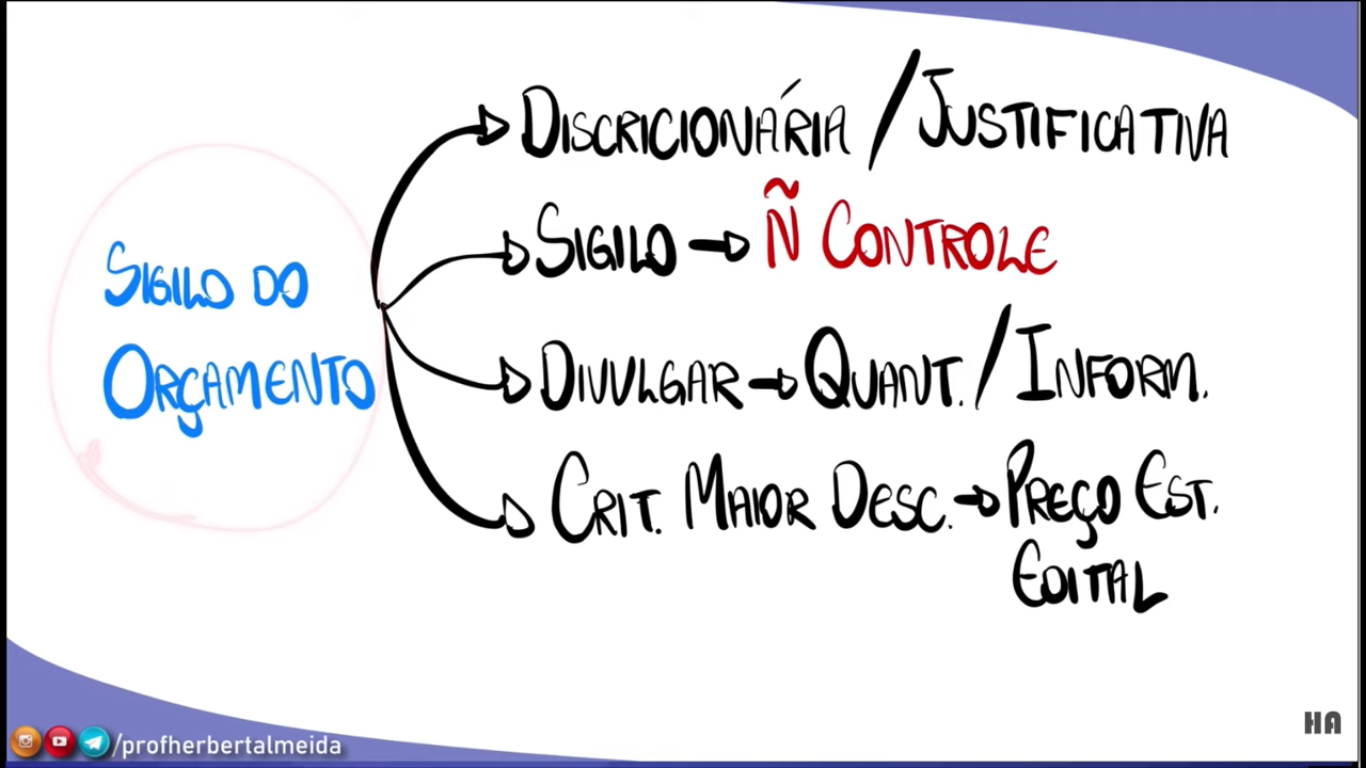 SIGILO DO
ORÇAMENTO
DISCRICIONÁRIA / JUSTIFICATIVA
SIGILO → Ñ CONTROLE
DIVULGAR → QUANT. / INFORM.
CRIT. MAIOR DESC. → PREÇO EST.
EDITAL
/profherbertalmeida
HA